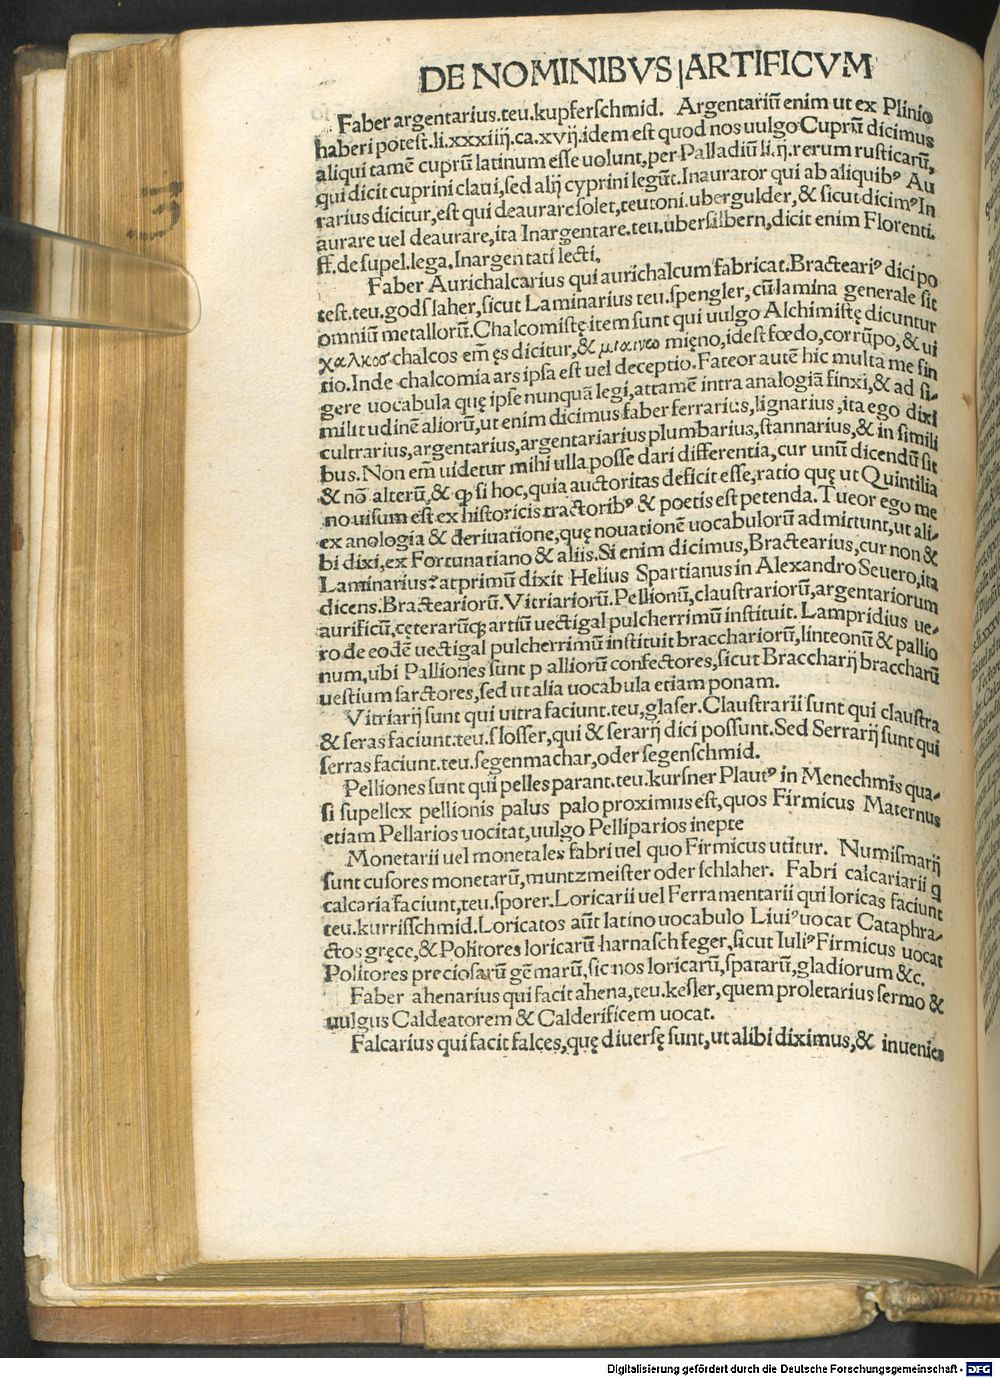 DE NOMINIBVS ARTIFICVM
Faber argentarius.teu.kupferſchmid. Argentariū enim ut ex Plinio
haberi poteſt.li.xxxiiij.ca.xvij.idem eſt quod nos uulgo Cuprū dicimus
aliqui tamē cuprū latinum eſſe uolunt,per Palladiū li.ij.rerum ruſticarū,
qui dicit cuprini claui,ſed alij cyprini legūt.Inaurator qui ab aliquibꝰ Au
rarius dicitur,eſt qui deaurare ſolet,teutoni.ubergulder,& ſicut dicimꝰ In
aurare uel deaurare,ita Inargentare.teu.uberſilbern,dicit enim Florenti.
ff.de ſupel.lega.Inargentati lecti.
Faber Aurichalcarius qui aurichalcum fabricat.Bracteariꝰ dici po
teſt.teu.godſlaher,ſicut Laminarius teu.ſpengler,cū lamina generale ſit
omniū metallorū.Chalcomiſtę item ſunt qui uulgo Alchimiſtę dicuntur
χαλκοσ chalcos em̄ ęs dicitur,& μιαινω mięno,ideſt fœdo,corrūpo,& ui
tio.Inde chalcomia ars ipſa eſt uel deceptio.Fateor autē hic multa me fin
gere uocabula quę ipſe nunquā legi,attamē intra analogiā finxi,& ad ſi-
militudinē aliorū,ut enim dicimus faber ferrarius,lignarius,ita ego dixi
cultrarius,argentarius,argentariarius plumbarius,ſtannarius,& in ſimili
bus.Non em̄ uidetur mihi ulla poſſe dari differentia,cur unū dicendū ſit
& nō alterū,& ꝙ ſi hoc,quia auctoritas deficit eſſe,ratio quę ut Quintilia
no uiſum eſt ex hiſtoricis tractoribꝰ & poetis eſt petenda.Tueor ego me
ex anologia & deriuatione,quę nouationē uocabulorū admittunt,ut ali-
bi dixi,ex Fortunatiano & aliis.Si enim dicimus,Bractearius,cur non &
Laminarius?at primū dixit Helius Spartianus in Alexandro Seuero,ita
dicens.Bracteariorū.Vitriariorū.Pellionū,clauſtrariorū,argentariorum
aurificū,cęterarūqꝫ artiū uectigal pulcherrimū inſtituit.Lampridius ue-
ro de eodē uectigal pulcherrimū inſtituit bracchariorū,linteonū & pallio
num,ubi Palliones ſunt p alliorū confectores,ſicut Braccharij braccharū
ueſtium ſarctores,ſed ut alia uocabula etiam ponam.
Vitriarij ſunt qui uitra faciunt.teu,glaſer.Clauſtrarii ſunt qui clauſtra
& ſeras faciunt.teu.ſloſſer,qui & ſerarij dici poſſunt.Sed Serrarij ſunt qui
ſerras faciunt.teu.ſegenmachar,oder ſegenſchmid.
Pelliones ſunt qui pelles parant.teu.kurſner Plautꝰ in Menechmis qua-
ſi ſupellex pellionis palus palo proximus eſt,quos Firmicus Maternus
etiam Pellarios uocitat,uulgo Pelliparios inepte
Monetarii uel monetales fabri uel quo Firmicus utitur. Numiſmarij
ſunt cuſores monetarū,muntzmeiſter oder ſchlaher. Fabri calcariarii q
calcaria faciunt,teu.ſporer.Loricarii uel Ferramentarii qui loricas faciunt
teu.kurriſſchmid.Loricatos aūt latino uocabulo Liuiꝰ uocat Cataphra-
ctos gręce,& Politores loricarū harnaſchfeger,ſicut Iuliꝰ Firmicus uocat
Politores precioſarū gēmarū,ſic nos loricarū,ſpatarū,gladiorum &c.
Faber ahenarius qui facit ahena,teu.keſler,quem proletarius ſermo &
uulgus Caldeatorem & Calderificem uocat.
Falcarius qui facit falces,quę diuerſę ſunt,ut alibi diximus,& inuenies
Digitalisierung gefördert durch die Deutsche Forschungsgemeinschaft - DFG